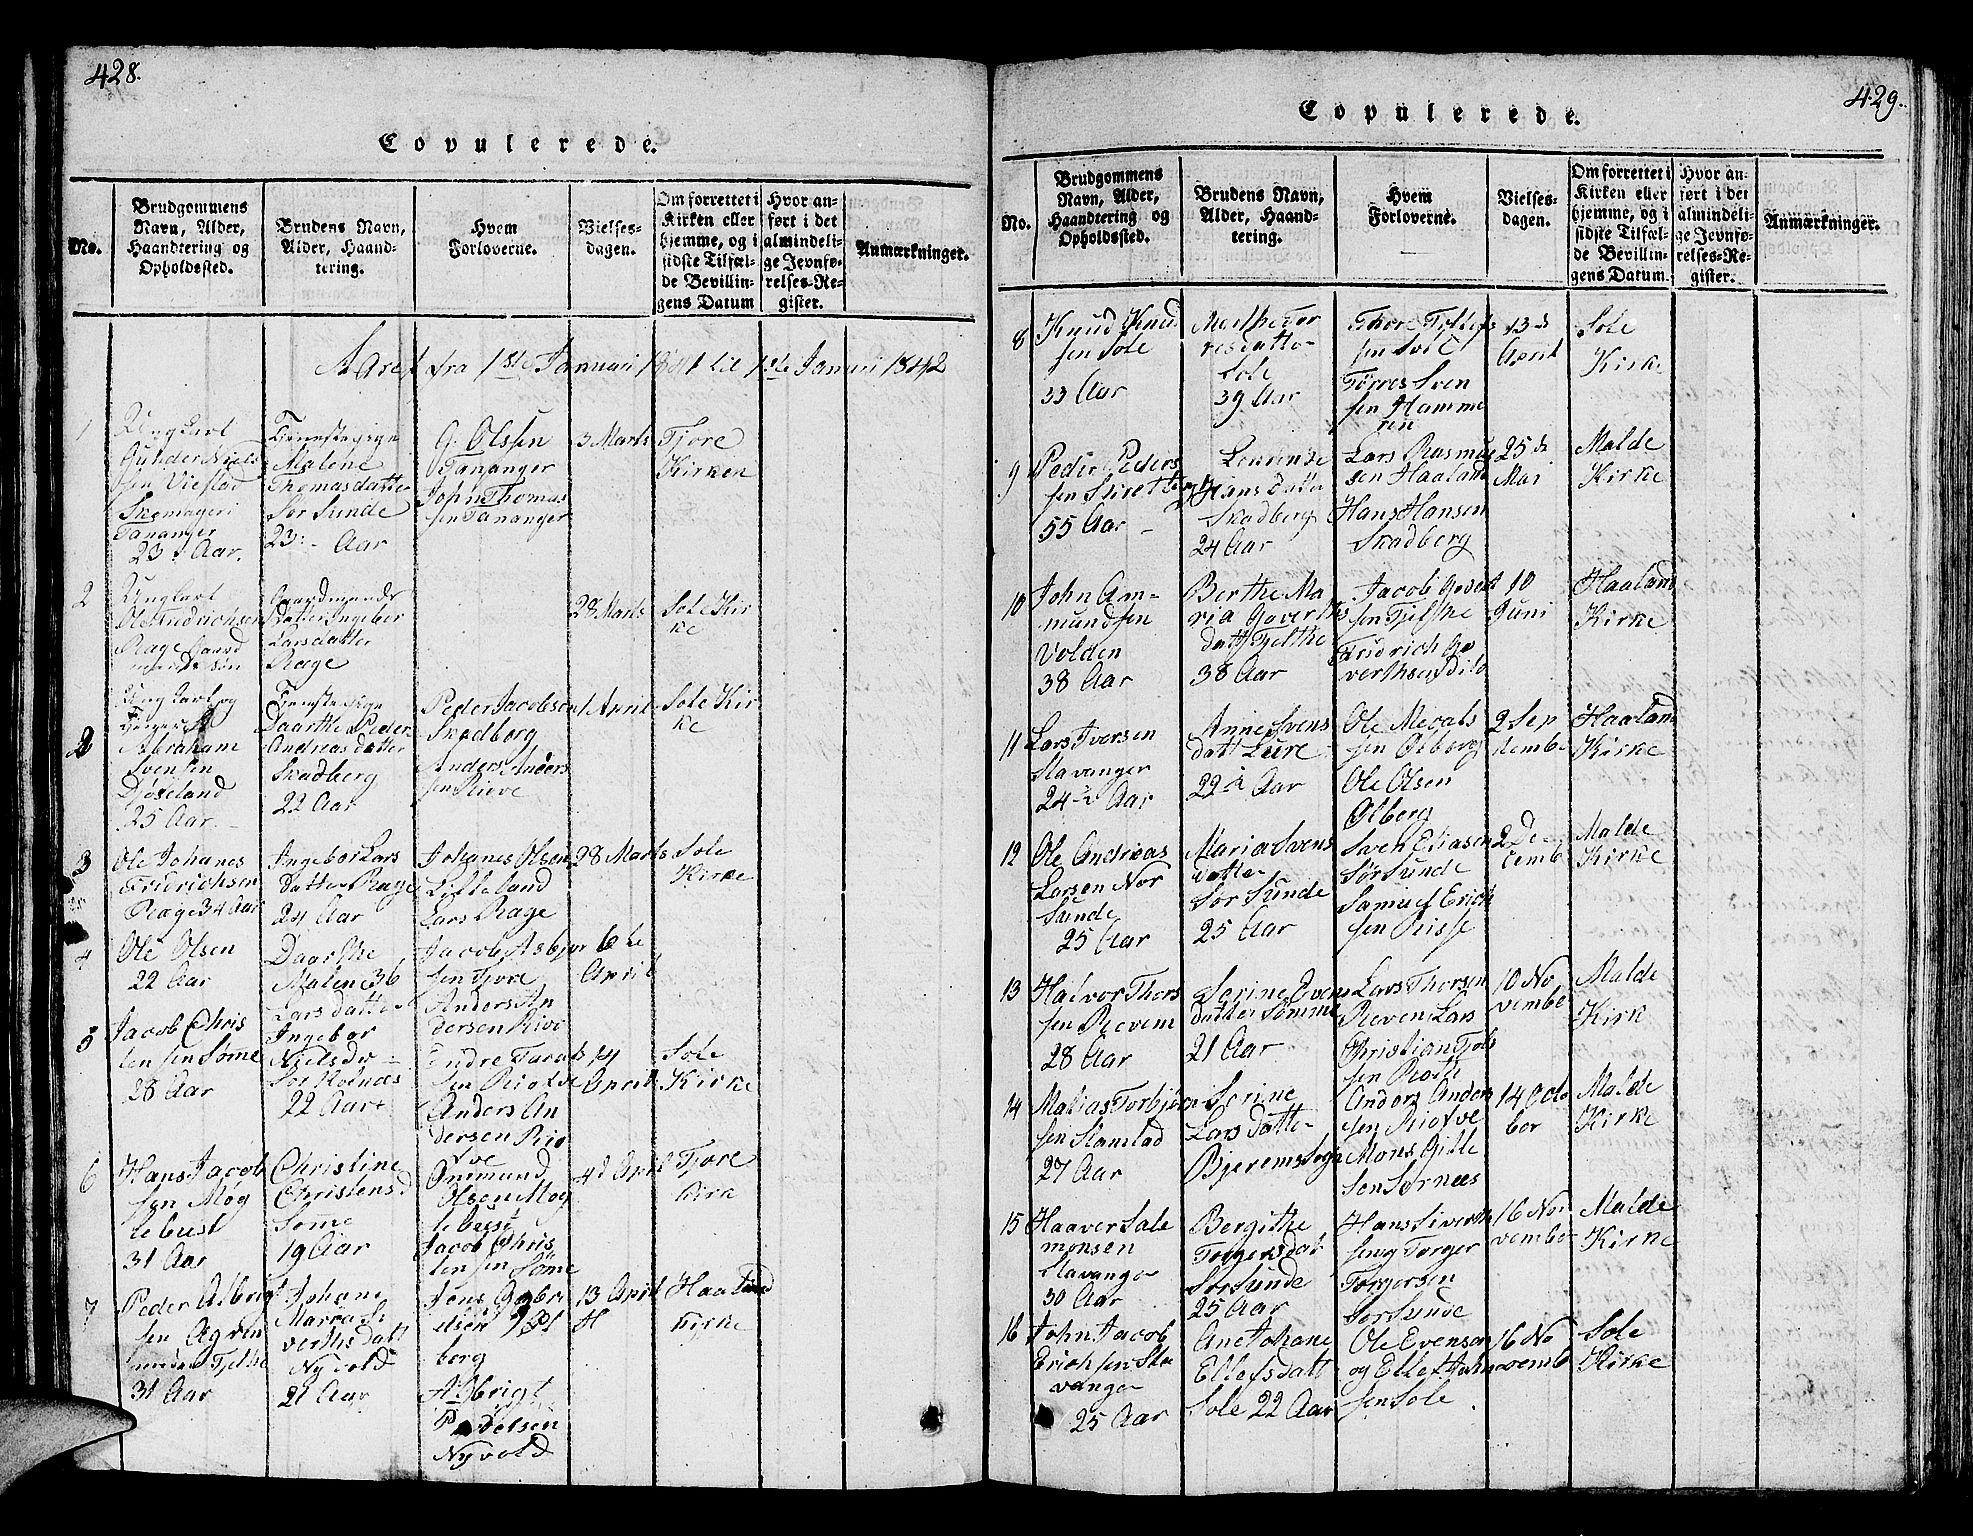 428.
Copulerede.
No.
Brudgommens
Navn, Alder,
Haandtering og
Opholdssted.
Brudens Navn,
Alder, Haand-
tering.
Hvem
Forloverne.
Vielses-
dagen.
Om forrettet i
Kirken eller
hjemme, og i
sidste Tilfæl-
de Bevillin-
gens Datum
Hvor an-
ført i det
almindeli-
ge Jevnfø-
relses-Re-
gister.
Anmærkninger.
Aaret fra 1ste Januari 1841 til 1ste Januri 1842
1
Ungkarl
Gunder Niels
sen Viestad
Skomager i
Tananger
23 Aar.
Tjenestepige
Malene
Thomasdatter
Sør Sunde
23 Aar
G. Olssen
Tananger
John Thomas
sen Tananger
3 Marts
Tjore
Kirken
2
Ungkarl
Ole Fridrichsen
Rage Gaard
mands søn
Gaardmands
Datter Ingebor
Larsdatter
Rage
28 Marts
Sole Kir
ke
2
Ungkarl og
Abraham
Svensen
25 Aar
Tjenestepige
Daarthe Peder
Andreas datter
Skadberg
22 Aar
Peder Jacobsen
Skadberg
Anders Anders
sen Riove
1 April
Sole Kir
ke
3
Ole Johanes
Fridrichsen
Rage 34 Aar
Ingebor Lars
datter Rage
24 Aar
Johanes Olsen
Lilleland
Lars Rage
28 Marts
Sole
Kirke
4
Ole Olsen
22 Aar
Daarthe
Malene 36
Lars datter
Jacob Asbjor
sen Tjore
Anders An
dersen Riov
6te
April
5
Jacob Chris
tensen Sømme
28 Aar
Ingebor
Nielsda
Sør Kolnæs
22 Aar
Endre Tarals
sen Riotve
Anders An
dersen Rio
tve
14
April
Sole
Kirke
6
Hans Jacob
sen Møg
lebust
31 Aar
Christine
Christensd
Sømme
19 Aar
Ommund
Olsen Møg
lebust
Jacob Chris
tensen Sømme
4d April
Tjore
Kirk
7
Peder Albrigt
sen
31 Aar
Johane
Maria Si
verthsdatt
Nyvold
21 Aar
Jens Gabri
elsen
berg
Albrigt
Pedersen
Nyvold
13 April
Haaland
Kirke
429.
Copulerede.
No.
Brudgommens
Navn, Alder,
Haandtering og
Opholdssted.
Brudens Navn,
Alder, Haand-
tering.
Hvem
Forloverne.
Vielses-
dagen.
Om forrettet i
Kirken eller
hjemme, og i
sidste Tilfæl-
de Bevillin-
gens Datum.
Hvor an-
ført i det
almindeli-
ge Jevnfø-
relses-Re-
gister.
Anmærkninger.
8
Knud Knud
sen Sole
33 Aar
Marthe Tor
resdatter
Sole
39 Aar
Thore Tollefs
sen Sole
Tørres Sven
sen Hamme
ren
13de
April
Sole
Kirke
9
Peder Peders
sen
55 Aar
Lourense
Hans datter
Skadberg
24 Aar
Lars Rasmus
sen Haaland
Hans Hansen
Skadberg
25de
Mai
Malde
Kirke
10
John Aan-
mundsen
Volden
38 Aar
Berthe Ma
ria Goverths
datt Tjelthe
38 Aar
Jacob Govert
sen Tjelthe
Fridrich Go
verthsen dito
10
Juni
Haaland
Kirke
11
Lars Iversen
Stavanger
24 Aar
Anne Svens
datt Lure
22 Aar
Ole Mevats
sen Ølberg
Ole Olsen
Ølberg
2 Sep
tember
Haaland
Kirke
12
Ole Andreas
Larsen Nor
Sunde
25 Aar
Maria Svens
datter
Sør Sunde
25 Aar
Sven Eliasen
Sør Sunde
Samuel Erich
sen Risse
2 De
cemb
Malde
Kirke
13
Halvor Thors
sen Revem
28 Aar
Serine Evens
datter Sømme
21 Aar
Lars Thorsen
Reven Lars
Christian Tjøls
sen Rosli
10 No
vember
Malde
Kirk
14
Matias Torbjørn
sen Stamstad
27 Aar
Serine
Lars datter
Bjerems Sogn
Anders Anders
sen Riotve
Mons Gitle
sen Sørnæs
14 Octo
ber
Malde
Kirke
15
Haaver Sale
monsen
Stavanger
30 Aar
Bergithe
Torgersdat
Sør Sunde
25 Aar
Hans Siverth
sen og Torger
Torgersen
Sør Sunde
16 No
vember
Malde
Kirke
16
John Jacob
Erichsen Sta
vanger
25 Aar
Ane Johane
Ellefsdatt
Sole 22 Aar
Ole Evensen
og Ellef John
sen Sole
16 No
vemb
Sole
Kirke